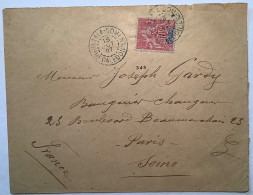 Monsieur Joseph Gardy
Banquier Changeur
23 Boulevard Beaumarchais 23
Paris
Seine
(France)